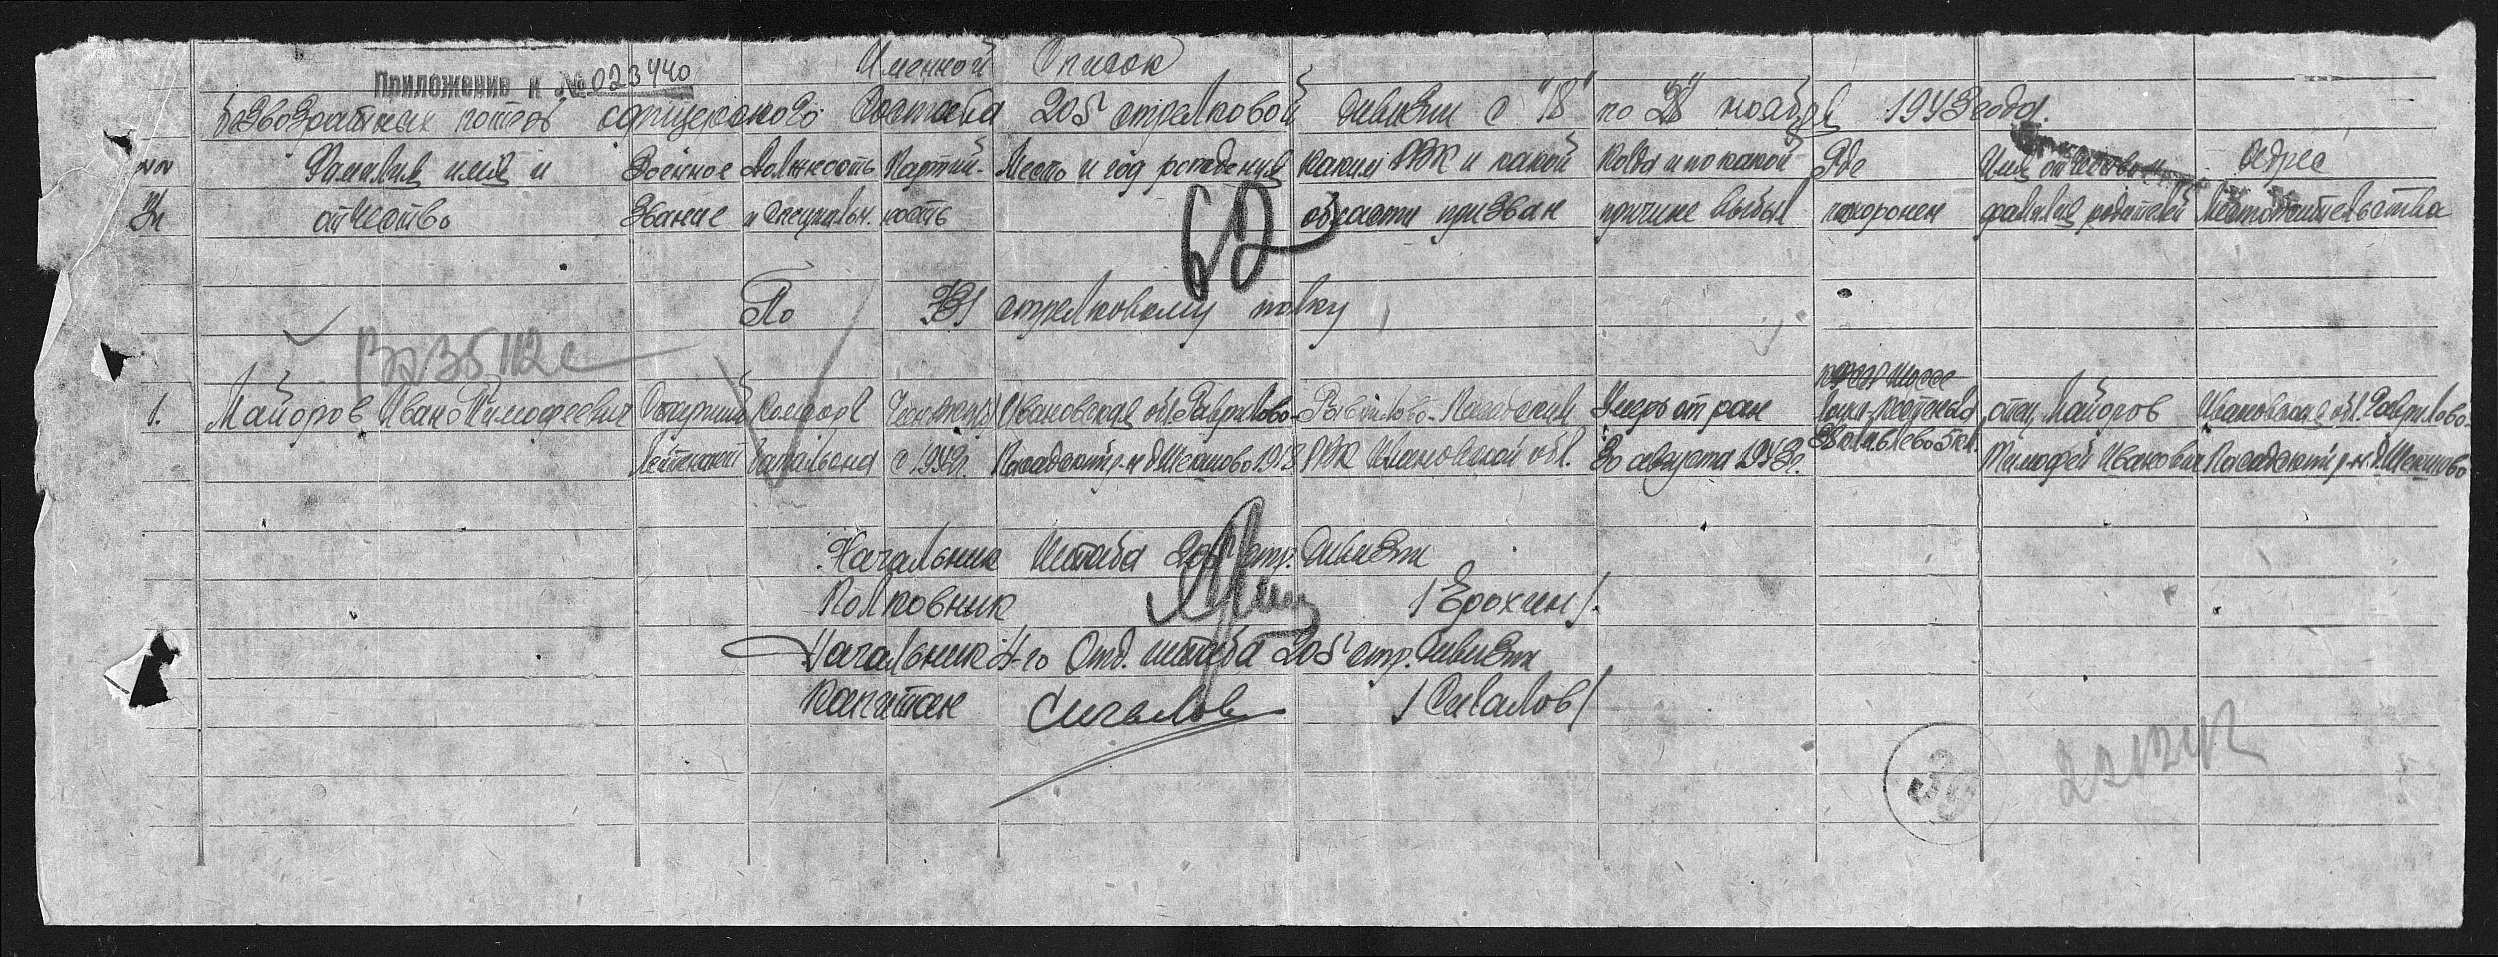 Именной список
Приложение к № 023440
безвозвратных потерь офицерского состава 205 стрелковой дивизии с "18" по "28" ноября 1943 года.
№№ Фамилия имя и Военное Должность Партий- Место и год рождения каким РВК и какой Когда и по какой Где Имя отчество Адрес
отчество звание и специальн. ность области призван причине выбыл похоронен фамилия родителей местожительства
62
По 731 стрелковому полку
1. Майоров Иван Тимофеевич Старший Ивановская обл. Гаврилово- Гаврилово-Посадским Умер от ран отец Майоров Ивановская обл. Гаврилово-
лейтенант батальона с 1942г. Посадский р-н д. 1918 РВК Ивановской обл. 30 августа 1943г. Тимофей Иванович Посадский р-н д.
Начальник штаба 205 стр. дивизии
Полковник /Ерохин/.
Начальник 4-го Отд. штаба 205 стр. дивизии
Капитан Сигалов /Сигалов/
36